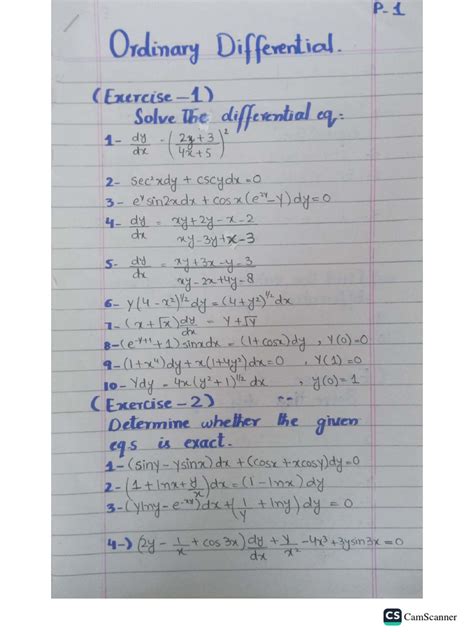 P-1
Ordinary Differential.
(Exercise-1)
Solve The differential eq:
1- dy/dx = (2y+3/4x+5)²
2- sec²xdy + cscydx=0
3- eʸsin2xdx + cosx(e²ʸ-y)dy=0
4- dy/dx = xy+2y-x-2/xy-3y+x-3
5- dy/dx = xy+3x-y-3/xy-2x+4y-8
6- y(4-x²)^1/2 dy = (4+y²)^1/2 dx
7-(x+√x)dy/dx = y+√y
8-(e^-y+1)sinxdx = (1+cosx)dy, y(0)=0
9-(1+x⁴)dy+x(1+4y²)dx=0, y(1)=0
10-ydy = 4x(y²+1)^1/2 dx, y(0)=1
(Exercise-2)
Determine whether the given
eqs is exact.
1-(siny-ysinx)dx+(cosx+xcosy)dy=0
2-(1+lnx+y/x)dx=(1-lnx)dy
3-(ylny-e^-xy)dx+(1/y+lny)dy=0
4-) (2y-1/x+cos3x)dy/dx+y/x²-4x³+3ysin3x=0
CS CamScanner